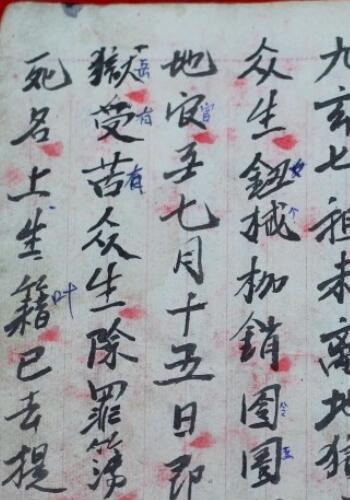 九玄七祖未离地獄
众生鈕械枷銷囹圄
地官至七月十五日即
獄受苦众生除罪簿
死名上生籍已去提